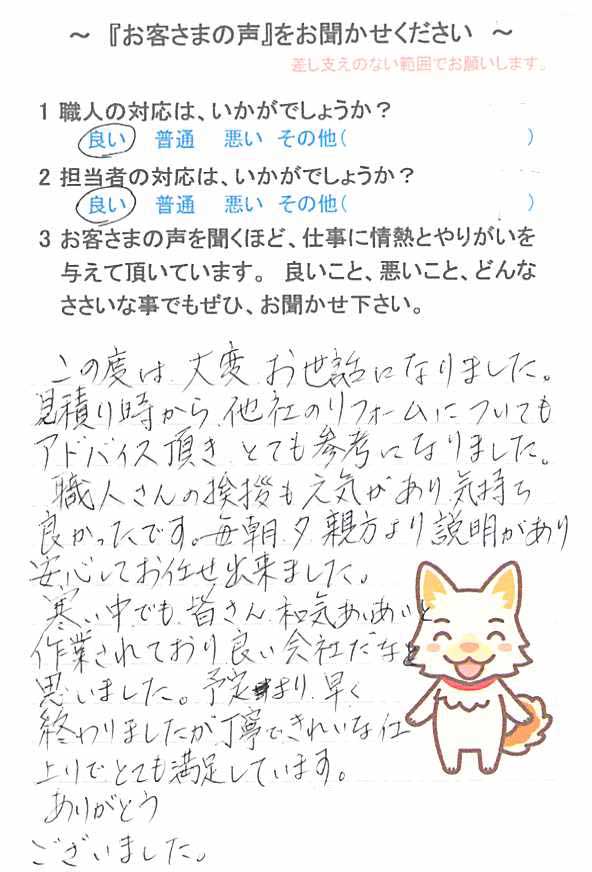 ～ 『お客さまの声』をお聞かせください ～
差し支えのない範囲でお願いします。
1 職人の対応は、いかがでしょうか？
良い 普通 悪い その他( )
2 担当者の対応は、いかがでしょうか？
良い 普通 悪い その他( )
3 お客さまの声を聞くほど、仕事に情熱とやりがいを
与えて頂いています。 良いこと、悪いこと、どんな
ささいな事でもぜひ、お聞かせ下さい。
この度は 大変 お世話になりました。
見積り時から 他社のリフォームについても
アドバイス頂き とても参考になりました。
職人さんの挨拶も元気があり気持ち
良かったです。毎朝夕 親方より説明があり
安心してお任せ出来ました。
寒い中でも 皆さん 和気あいあいと
作業されており良い会社だなと
思いました。予定より 早く
終わりましたが丁寧できれいな仕
上りでとても満足しています。
ありがとう
ございました。